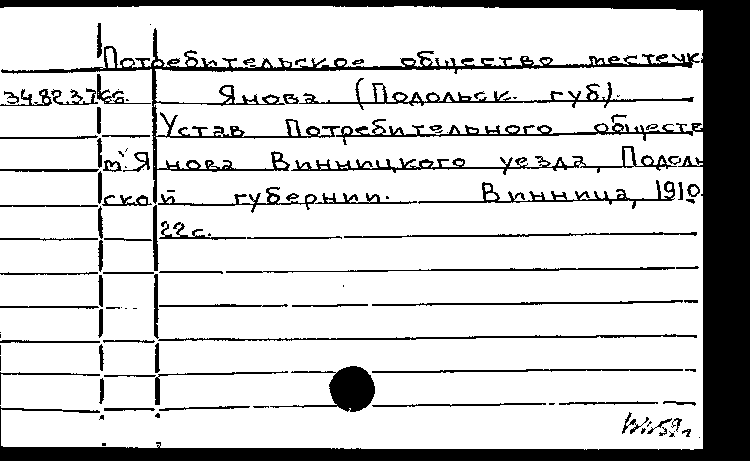 Потребительское общество местечк
34.82.3.766. Янова. (Подольск. губ).
Устав Потребительного обществ
м. Янова Винницкого уезда, Подоль
ской губернии. Винница, 1910.
22 с.